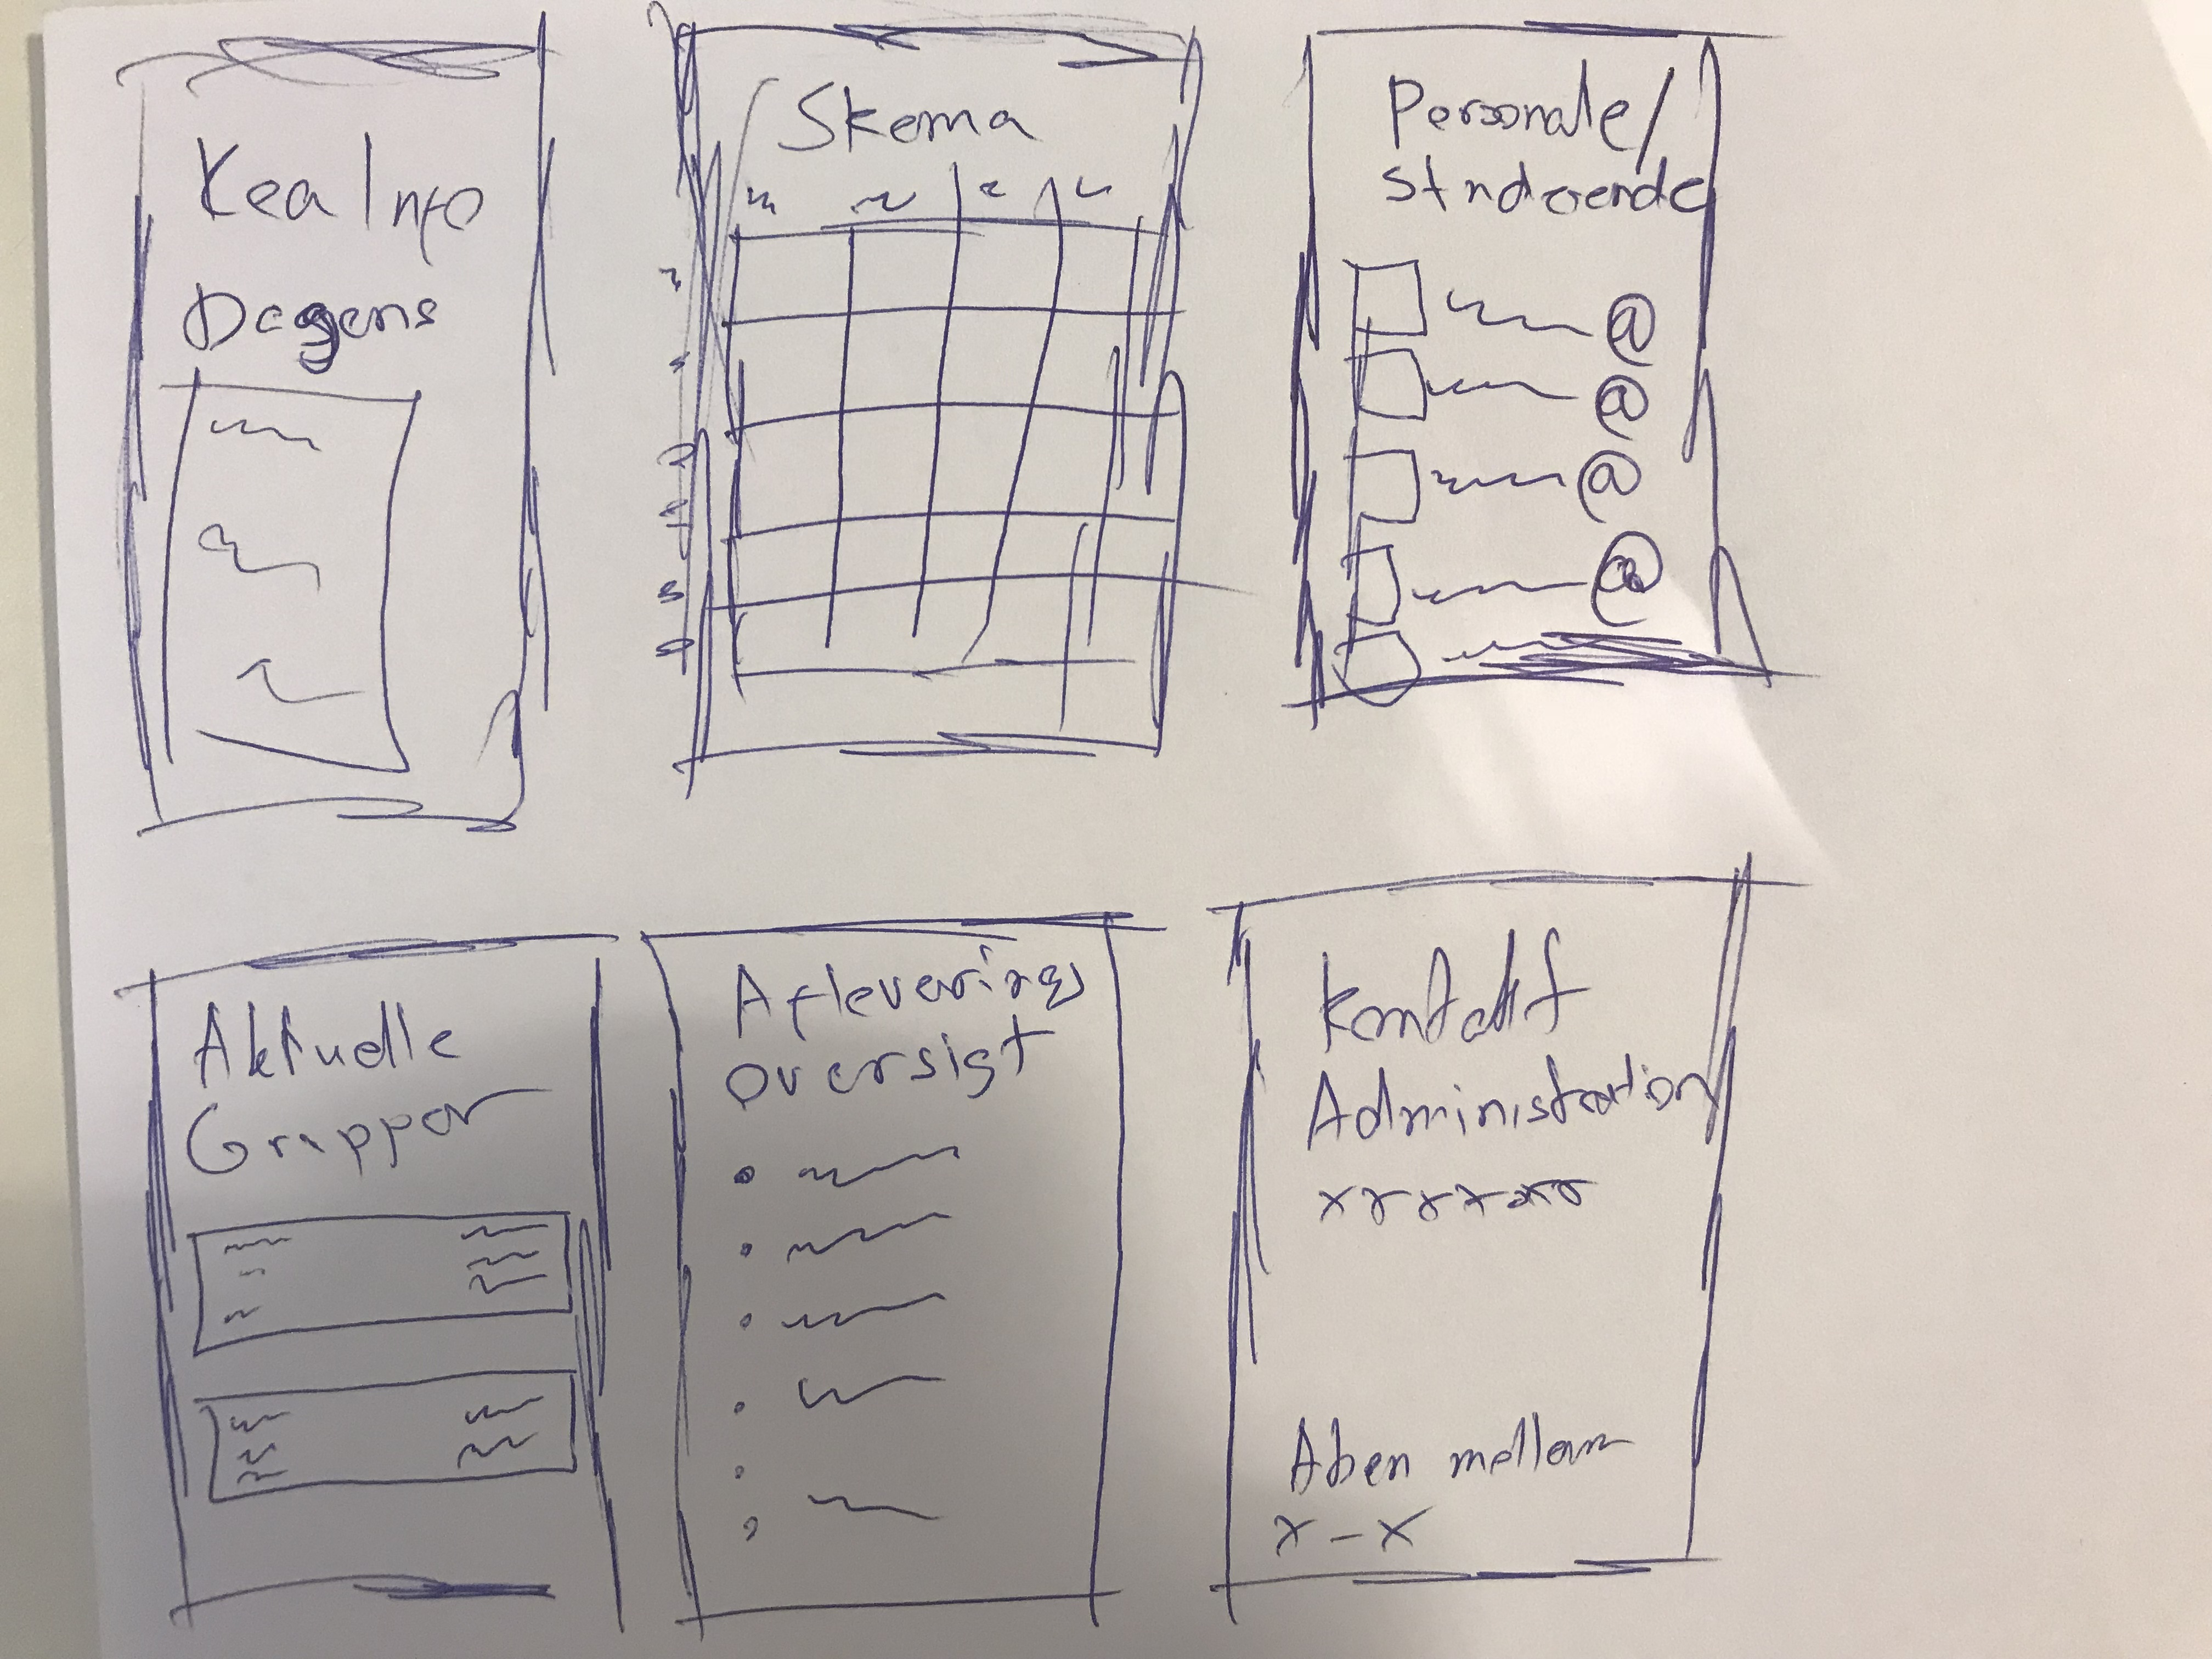 Kea Info
Dagens
Skema
Personale/
Studerende
@
@
@
@
Aktuelle
Grupper
Afleverings
oversigt
Kontakt
Administration
xxxxxxx
Åben mellem
x - x